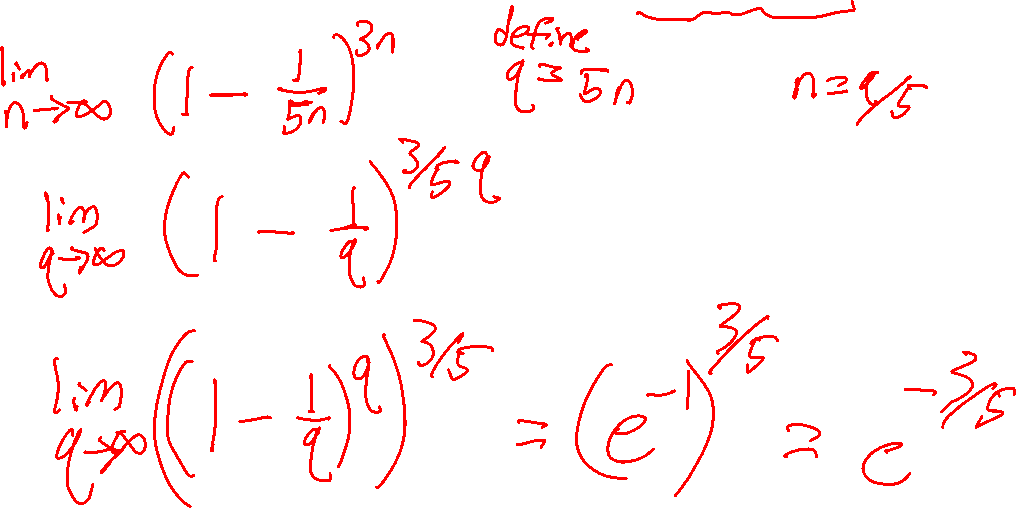 lim n→∞ (1 − 1/5n)^3n define q = 5n n = q/5
lim q→∞ (1 − 1/q)^3/5 q
lim q→∞ ((1 − 1/q)^q)^3/5 = (e^−1)^3/5 = e^−3/5